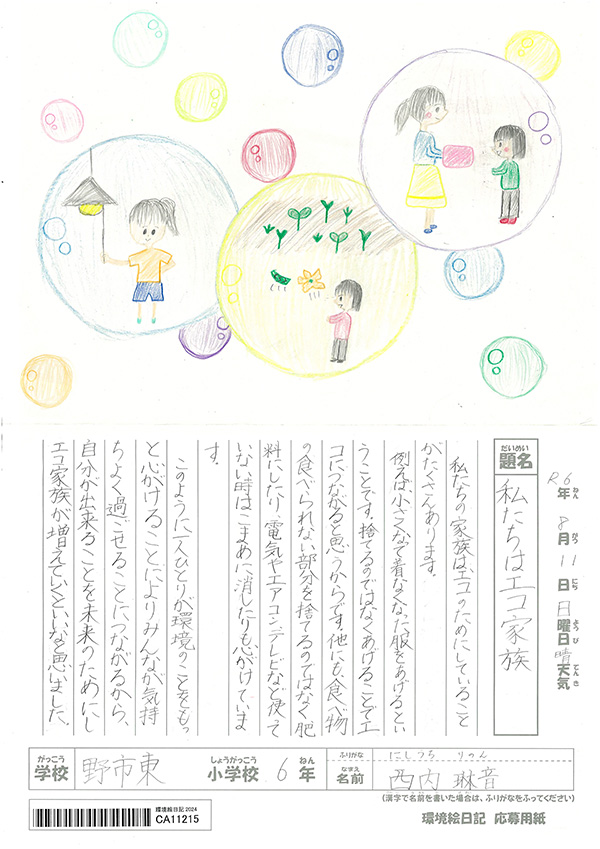 R6年 8月 11日 日曜日 晴天気
ねん がつ にち ようび てんき
だいめい
題名
私たちはエコ家族
私たちの家族は、エコのためにしていること
がたくさんあります。
例えば小さくなって着なくなった服をあげるとい
うことです。捨てるのではなくあげることでエ
コにつながると思うからです。他にも、食べ物
の食べられない部分を捨てるのではなく肥
料にしたり、電気やエアコン、テレビなど使って
いない時はこまめに消したりも心がけていま
す。
このように一人ひとりが環境のことをもっ
と心がけることによりみんなが気持
ちよく過ごせることにつながるから、
自分が出来ることを未来のためにし
エコ家族が増えていくといいなと思いました。
がっこう
学校
野市東
しょうがっこう
小学校
6
ねん
年
ふりがな
にしうち りのん
なまえ
名前
西内 琳音
(漢字で名前を書いた場合は、ふりがなをふってください)
環境絵日記2024
CA11215
環境絵日記 応募用紙